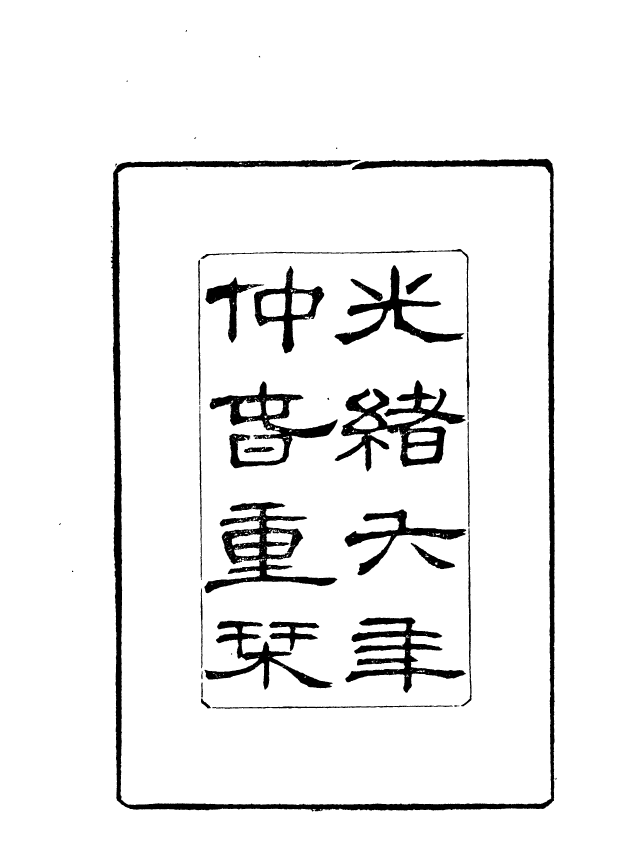 光緒六年
仲春重栞